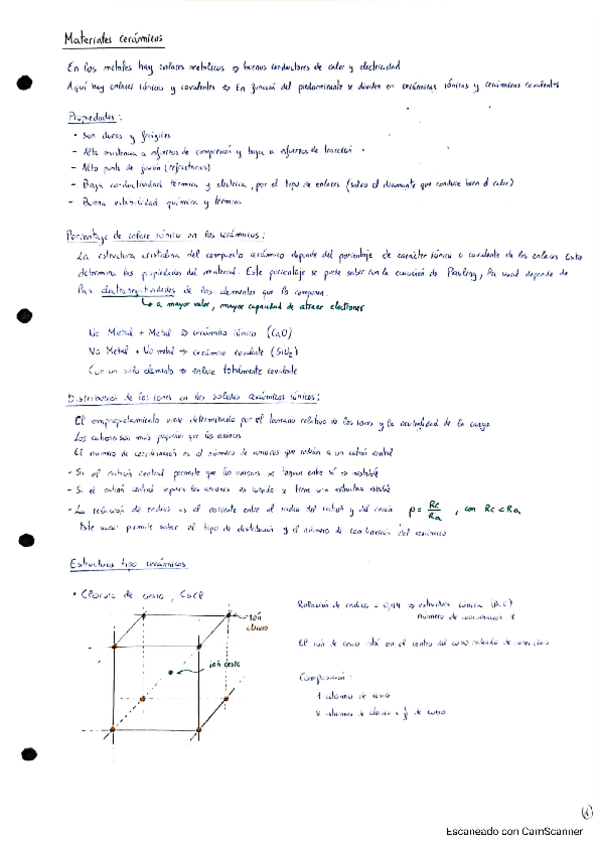 Materiales cerámicos
En los metales hay enlaces metálicos → buenos conductores de calor y electricidad
Aquí hay enlaces iónicos y covalentes → En función del predominante se dividen en cerámicas iónicas y cerámicas covalentes
Propiedades:
- Son duros y frágiles
- Alta resistencia a esfuerzos de compresión y baja a esfuerzos de tracción
- Alto punto de fusión (refractarios)
- Baja conductividad térmica y eléctrica, por el tipo de enlaces (salvo el diamante que conduce bien el calor)
- Buena estabilidad química y térmica
Porcentaje de enlace iónico en los cerámicos:
La estructura cristalina del compuesto cerámico depende del porcentaje de carácter iónico o covalente de los enlaces. Esto
determina las propiedades del material. Este porcentaje se puede saber con la ecuación de Pauling, la cual depende de
las electronegatividades de los elementos que lo componen.
↳ a mayor valor, mayor capacidad de atraer electrones
No Metal + Metal → cerámico iónico (CaO)
No Metal + No metal → cerámico covalente (SiO2)
Con un solo elemento → enlace totalmente covalente
Distribución de los iones en los sólidos cerámicos iónicos:
El empaquetamiento viene determinado por el tamaño relativo de los iones y la neutralidad de la carga
Los cationes son más pequeños que los aniones
El número de coordinación es el número de aniones que rodean a un catión central
- Si el catión central permite que los aniones se toquen entre sí → inestable
- Si el catión central separa los aniones es cuando se tiene una estructura estable
- La relación de radios es el cociente entre el radio del catión y del anión ρ = Rc/Ra , con Rc < Ra
Este valor permite saber el tipo de distribución y el número de coordinación del cerámico
Estructuras tipo cerámicos
• Cloruro de cesio, CsCl
ión cloro
ión cesio
Relación de radios = 0,94 → estructura cúbica (BCC)
número de coordinación 8
El ión de cesio está en el centro del cubo rodeado de
Composición:
1 átomo de cesio
8 átomos de cloro · 1/8 de cubo
1
Escaneado con CamScanner